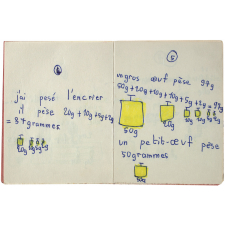 4
j'ai posé l'encrier
il pèse 20g+10g+5g+2g
= 37grammes
5
un gros œuf pèse 97g
50g+20g+10g+10g+5g+2g=97g
50g
20g
un petit-œuf pèse
50grammes
50g